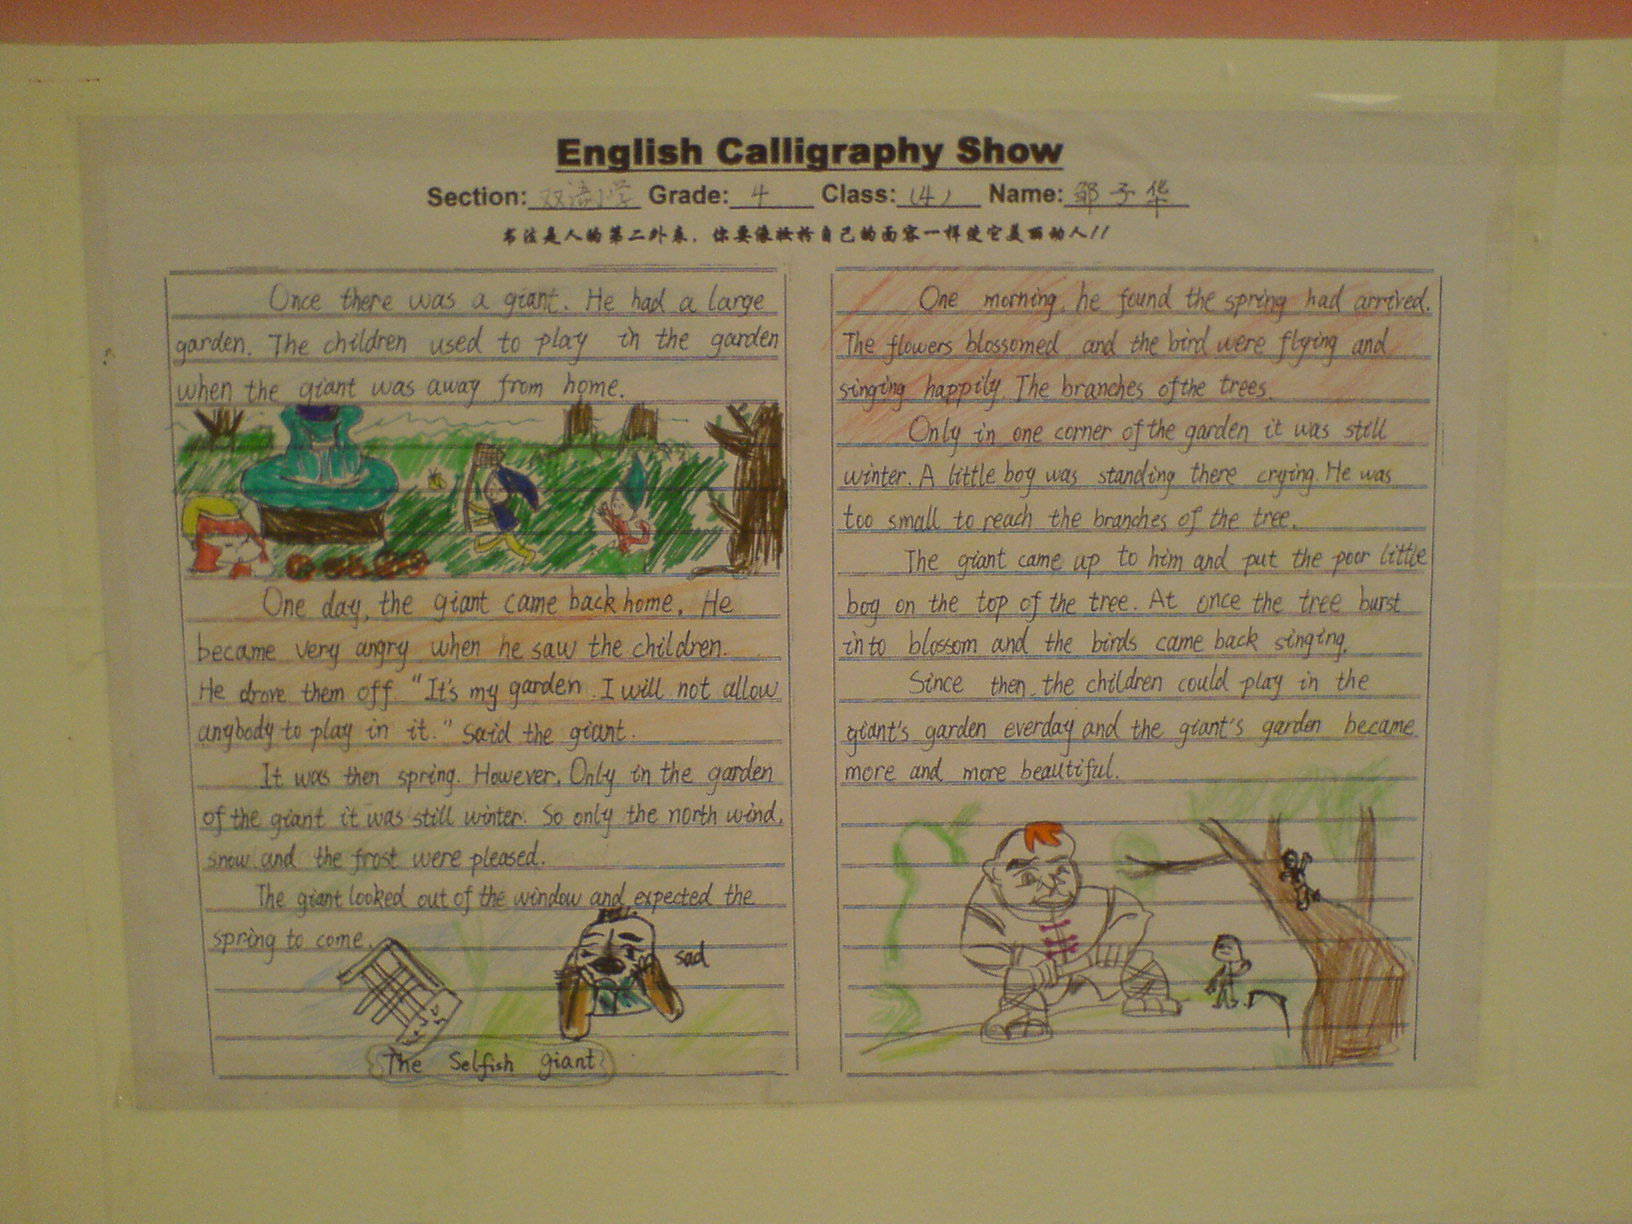 English Calligraphy Show
Section: 双语小学 Grade: 4 Class: (4) Name: 邹子华
书法是人的第二外表，你要像妆扮自己的面容一样使它美丽动人！！
Once there was a giant. He had a large
garden. The children used to play in the garden
when the giant was away from home.
One day, the giant came back home. He
became very angry when he saw the children.
He drove them off. "It's my garden. I will not allow
anybody to play in it." Said the giant.
It was then spring. However, Only in the garden
of the giant it was still winter. So only the north wind,
snow and the frost were pleased.
The giant looked out of the window and expected the
spring to come.
sad
The Selfish giant
One morning, he found the spring had arrived.
The flowers blossomed and the bird were flying and
singing happily. The branches of the trees.
Only in one corner of the garden it was still
winter. A little boy was standing there crying. He was
too small to reach the branches of the tree.
The giant came up to him and put the poor little
boy on the top of the tree. At once the tree burst
into blossom and the birds came back singing.
Since then, the children could play in the
giant's garden everday and the giant's garden became
more and more beautiful.